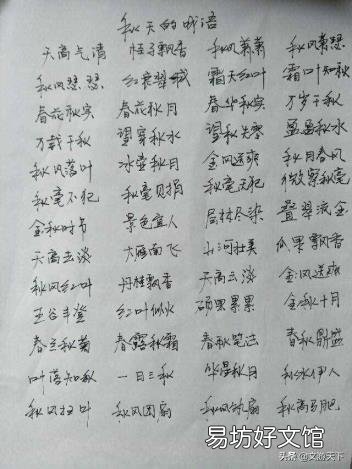 秋天的成语
天高气清 桂子飘香 秋风萧萧 秋风萧瑟
秋风瑟瑟 红衰翠减 霜天红叶 霜叶知秋
春花秋实 春花秋月 春华秋实 万岁千秋
万载千秋 望穿秋水 望秋先零 盈盈秋水
秋风落叶 冰壶秋月 金风送爽 秋月春风
秋毫不犯 秋毫见捐 秋毫无犯 微察秋毫
金秋时节 景色宜人 层林尽染 叠翠流金
天高云淡 大雁南飞 山河壮美 瓜果飘香
秋风红叶 丹桂飘香 天高云淡 金风送爽
五谷丰登 红叶似火 硕果累累 金秋十月
春兰秋菊 春露秋霜 春秋笔法 春秋鼎盛
叶落知秋 一日三秋 华星秋月 秋水伊人
秋风扫叶 秋风团扇 秋风纨扇 秋高马肥
易坊好文馆
头条 @文游天下